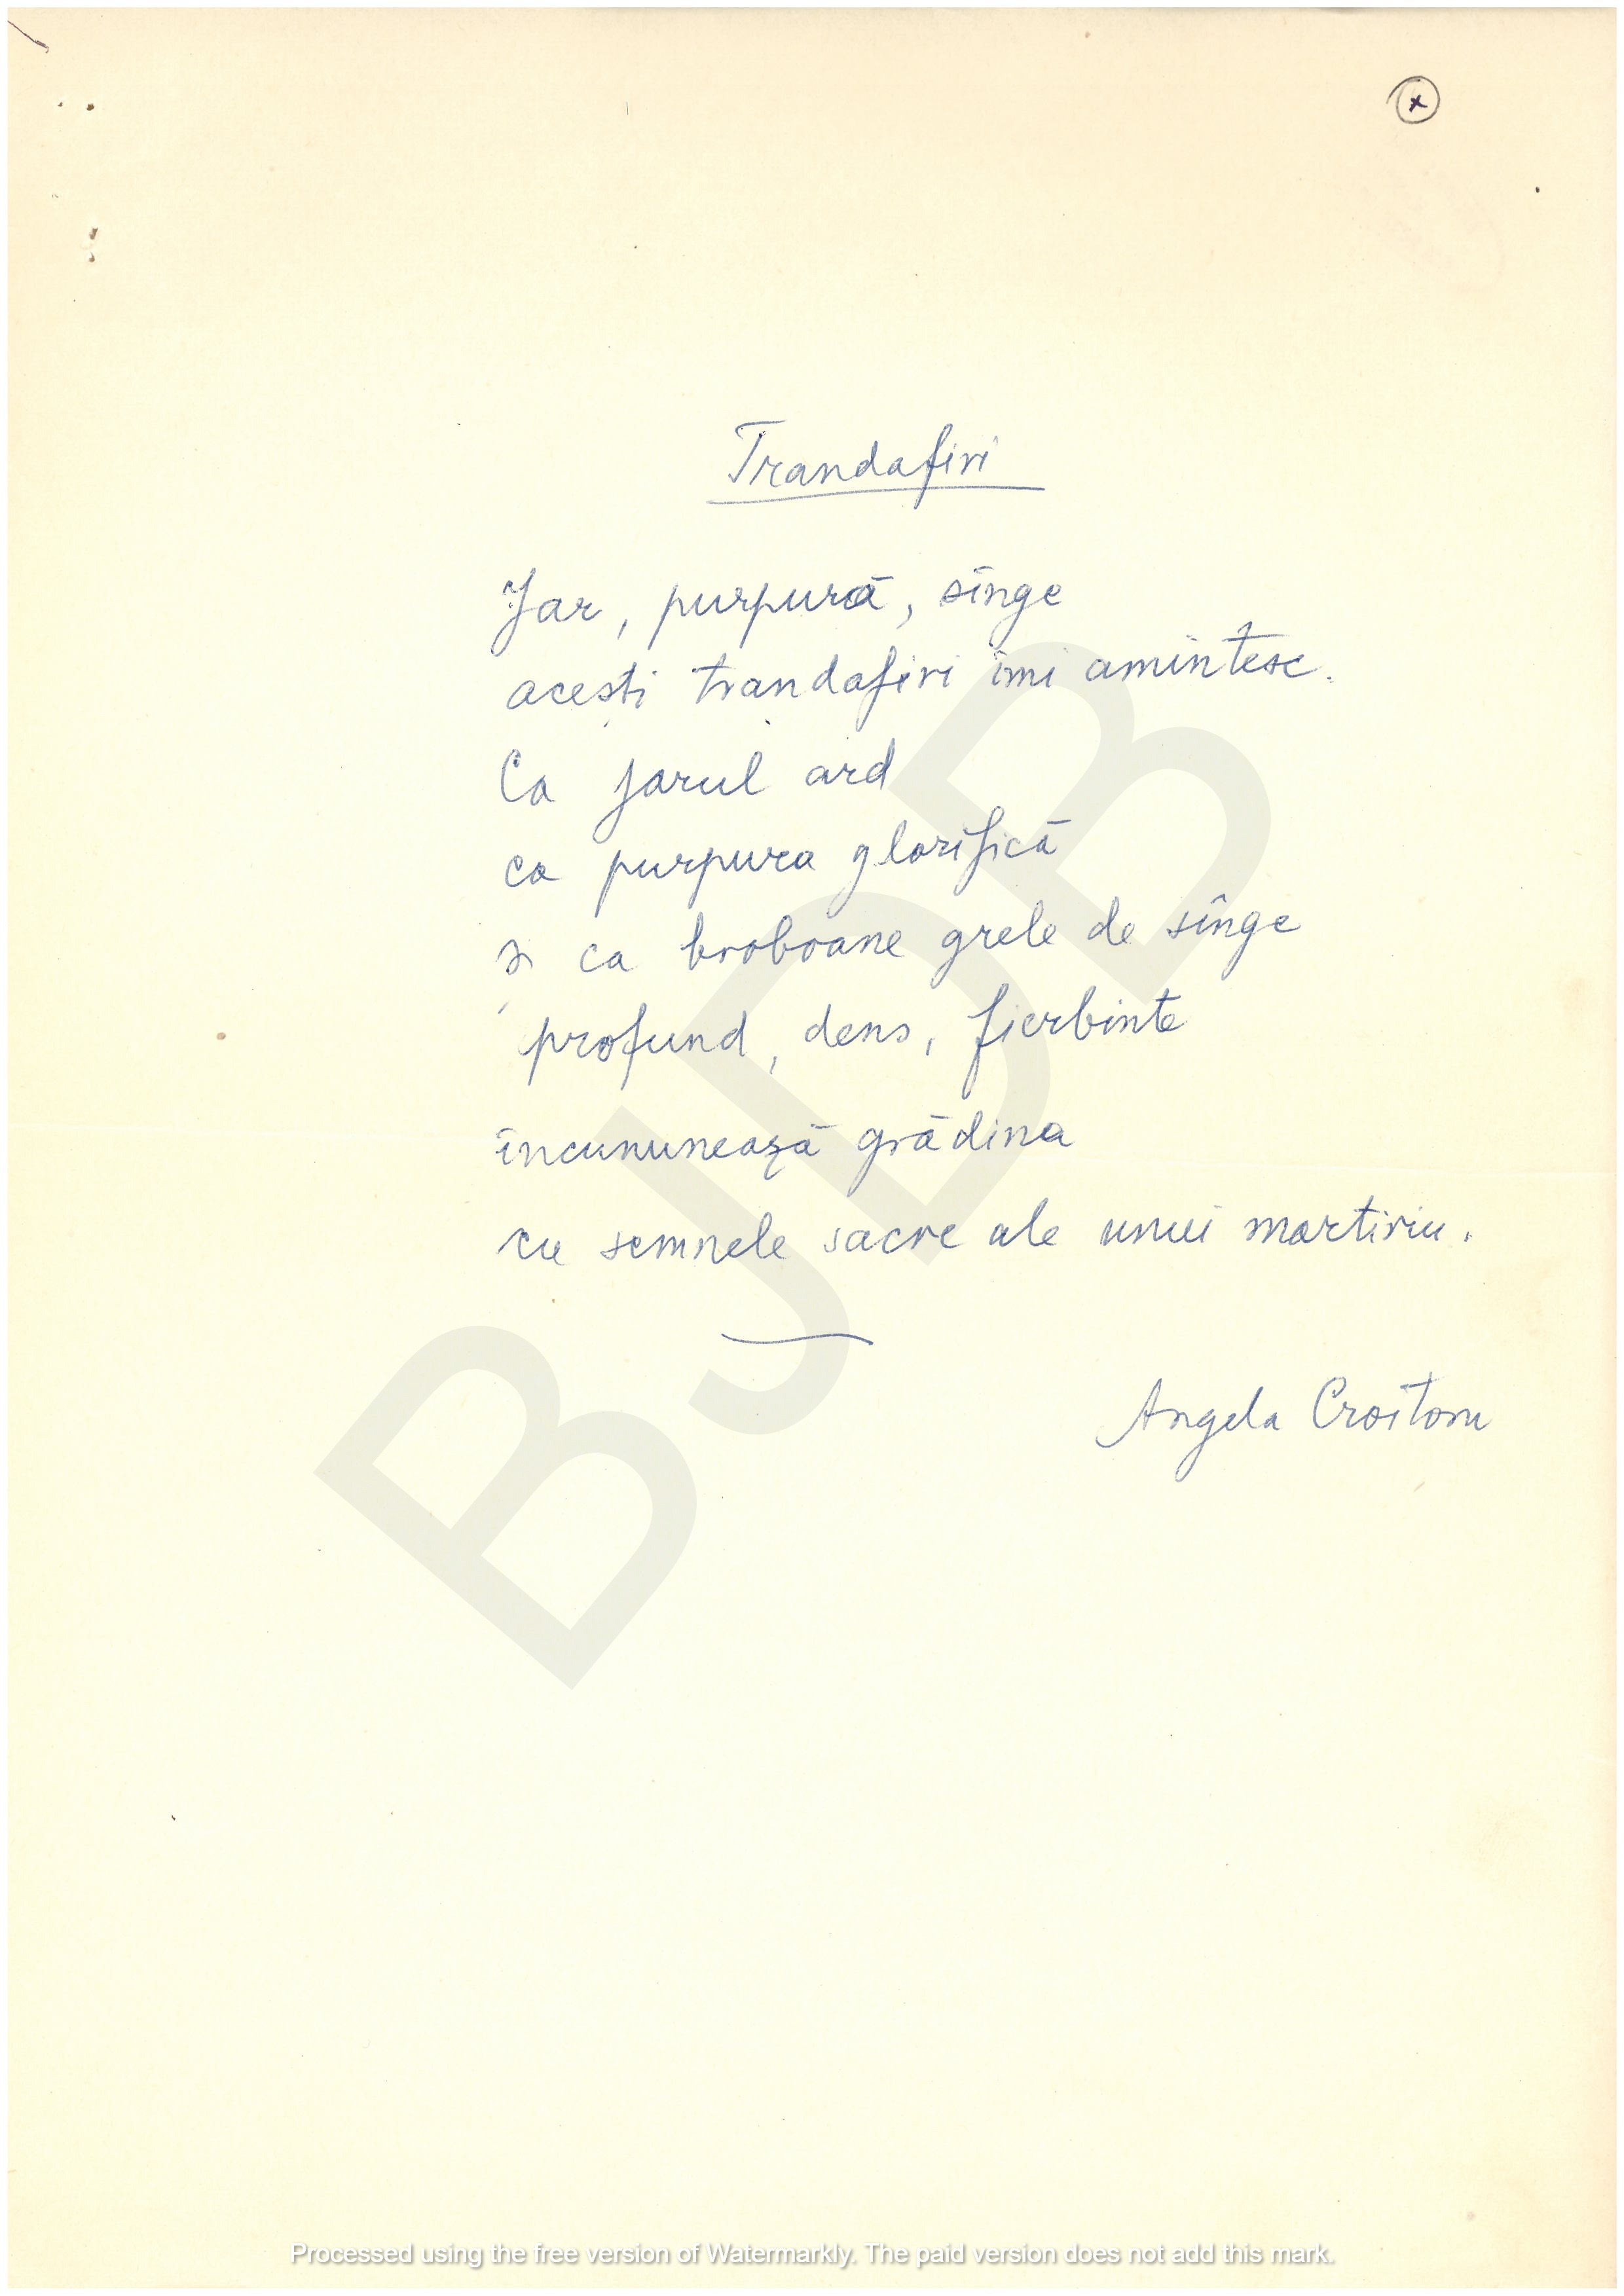 Trandafiri
Jar, purpură, sînge
acești trandafiri îmi amintesc.
Ca jarul ard
ca purpura glorifică
și ca broboane grele de sînge
profund, dens, fierbinte
încununează grădina
cu semnele sacre ale unui martiriu.
Angela Croitoru
BJDB
Processed using the free version of Watermarkly. The paid version does not add this mark.